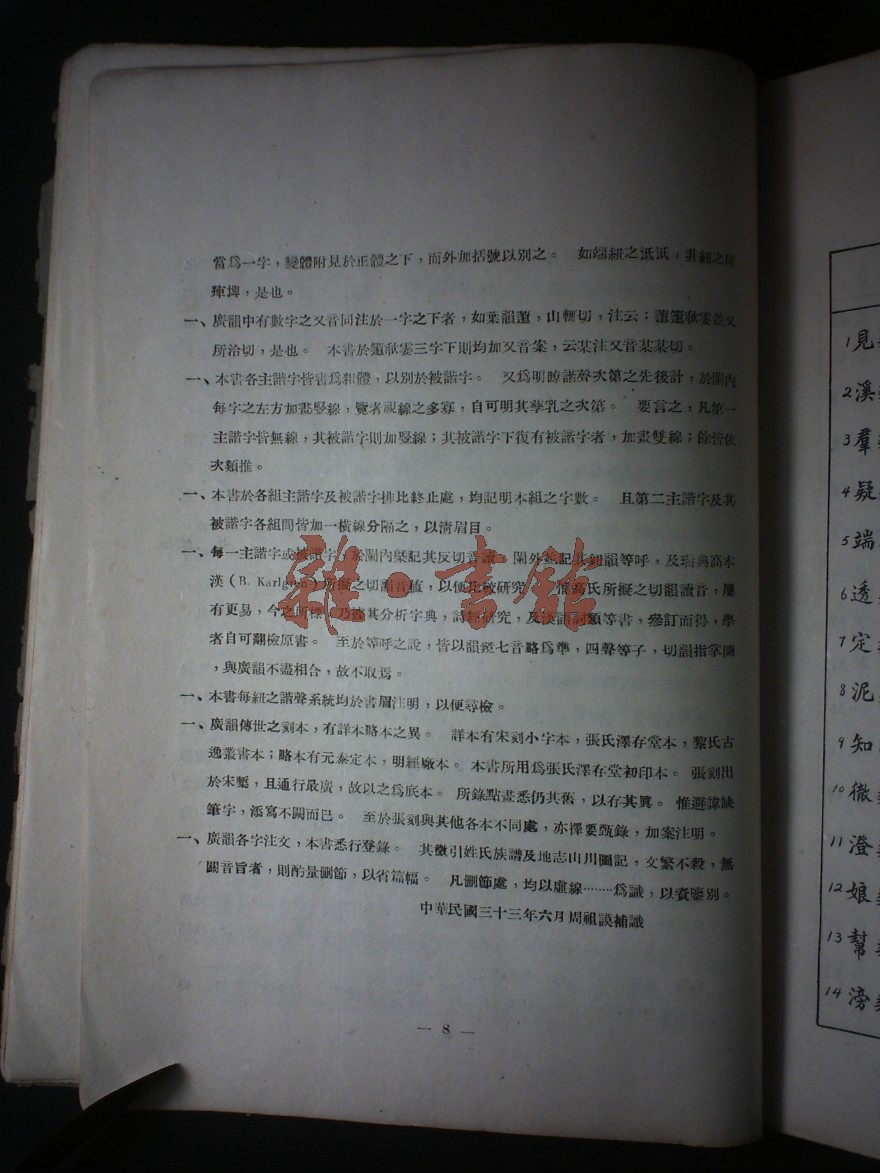 當爲一字，變體附見於正體之下，而外加括號以別之。　如端紐之泜泜，非紐之
㻫埤，是也。
一、廣韻中有數字之又音同注於一字之下者，如葉韻萐，山輒切，注云：萐箑歃霎並又
所洽切，是也。　本書於箑歃霎三字下則均加又音案，云某注又音某某切。
一、本書各主諧字皆書爲粗體，以別於被諧字。　又爲明瞭諧聲次第之先後計，於闌內
每字之左方加畫竪線，覽者視線之多寡，自可明其孳乳之次第。　要言之，凡第一
主諧字皆無線，其被諧字則加竪線；其被諧字下復有被諧字者，加畫雙線；餘皆依
次類推。
一、本書於各組主諧字及被諧字排比終止處，均記明本組之字數。　且第二主諧字及其
被諧字各組間皆加一橫線分隔之，以清眉目。
一、每一主諧字或被諧字，於闌內槩記其反切音讀，闌外並記其紐韻等呼，及瑞典高本
漢（B. Karlgren）所擬之切韻音值，以便比較研究。　惟高氏所擬之切韻讀音，屢
有更易，今之所標，乃據其分析字典，詩經研究，及漢語詞類等書，參訂而得，學
者自可翻檢原書。　至於等呼之說，皆以韻鏡七音略爲準，四聲等子，切韻指掌圖
，與廣韻不盡相合，故不取焉。
一、本書每紐之諧聲系統均於書眉注明，以便尋檢。
一、廣韻傳世之刻本，有詳本略本之異。　詳本有宋刻小字本，張氏澤存堂本，黎氏古
逸叢書本；略本有元泰定本，明經廠本。　本書所用爲張氏澤存堂初印本。　張刻出
於宋槧，且通行最廣，故以之爲底本。　所錄點畫悉仍其舊，以存其眞。　惟避諱缺
筆字，添寫不闕而已。　至於張刻與其他各本不同處，亦擇要甄錄，加案注明。
一、廣韻各字注文，本書悉行登錄。　其徵引姓氏族譜及地志山川圖記，文繁不殺，無
關音旨者，則酌量刪節，以省篇幅。　凡刪節處，均以虛線………爲識，以資鑒別。
中華民國三十三年六月周祖謨補識
— 8 —
雜·書館
1 見
2 溪
3 羣
4 疑
5 端
6 透
7 定
8 泥
9 知
10 徹
11 澄
12 娘
13 幫
14 滂